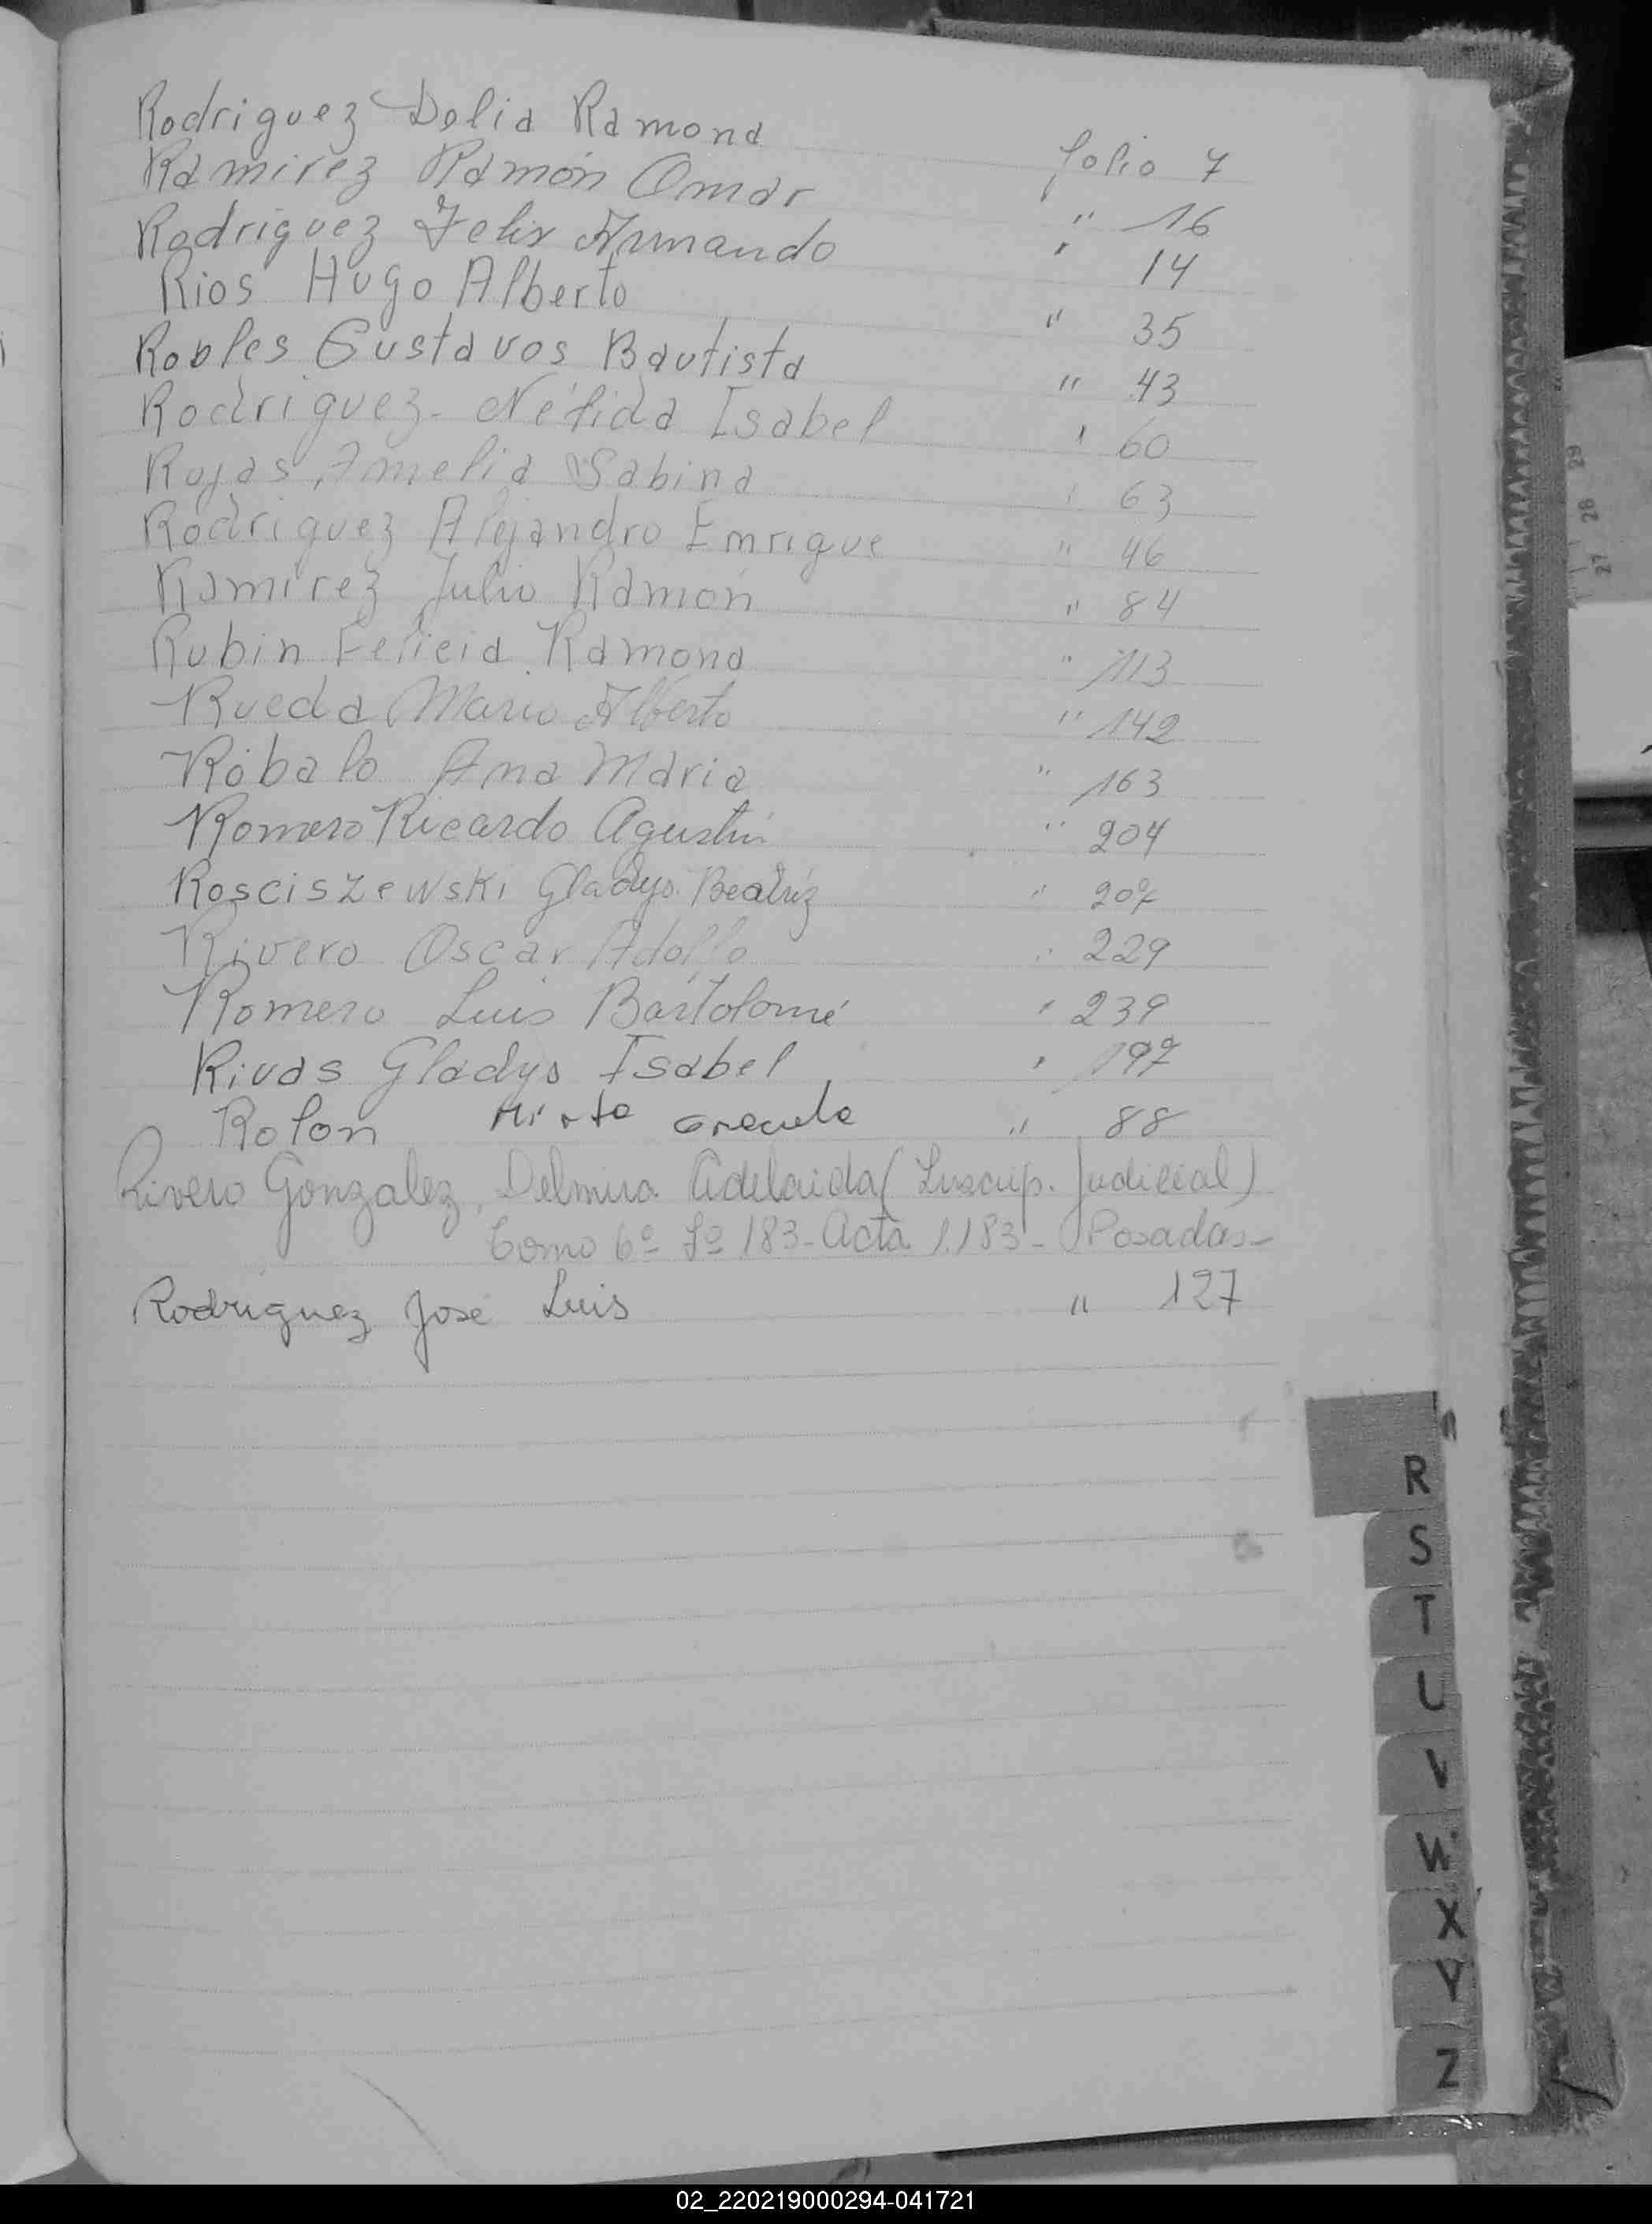 Rodriguez Delia Ramona folio 7
Ramirez Ramón Omar " 16
Rodriguez Felix Armando " 14
Rios Hugo Alberto " 35
Robles Gustavos Bautista " 43
Rodriguez - Nélida Isabel " 60
Rojas, Amelia Sabina " 63
Rodriguez Alejandro Enrique " 46
Ramirez Julio Ramón " 84
Rubin Felicia Ramona " 113
Rueda Mario Alberto " 142
Robalo Ana Maria " 163
Romero Ricardo Agustín " 204
Rosciszewski Gladys Beatriz " 207
Rivero Oscar Adolfo " 229
Romero Luis Bartolomé " 239
Rivas Gladys Isabel " 197
Rolon Mirta Graciela " 88
Rivero Gonzalez, Delmira Adelaida (Inscrip. Judicial)
Tomo 6º Fº 183 - Acta 1.183 - Posadas -
Rodriguez José Luis " 127
R
S
T
U
V
W
X
Y
Z
29
28
27
02_220219000294-041721